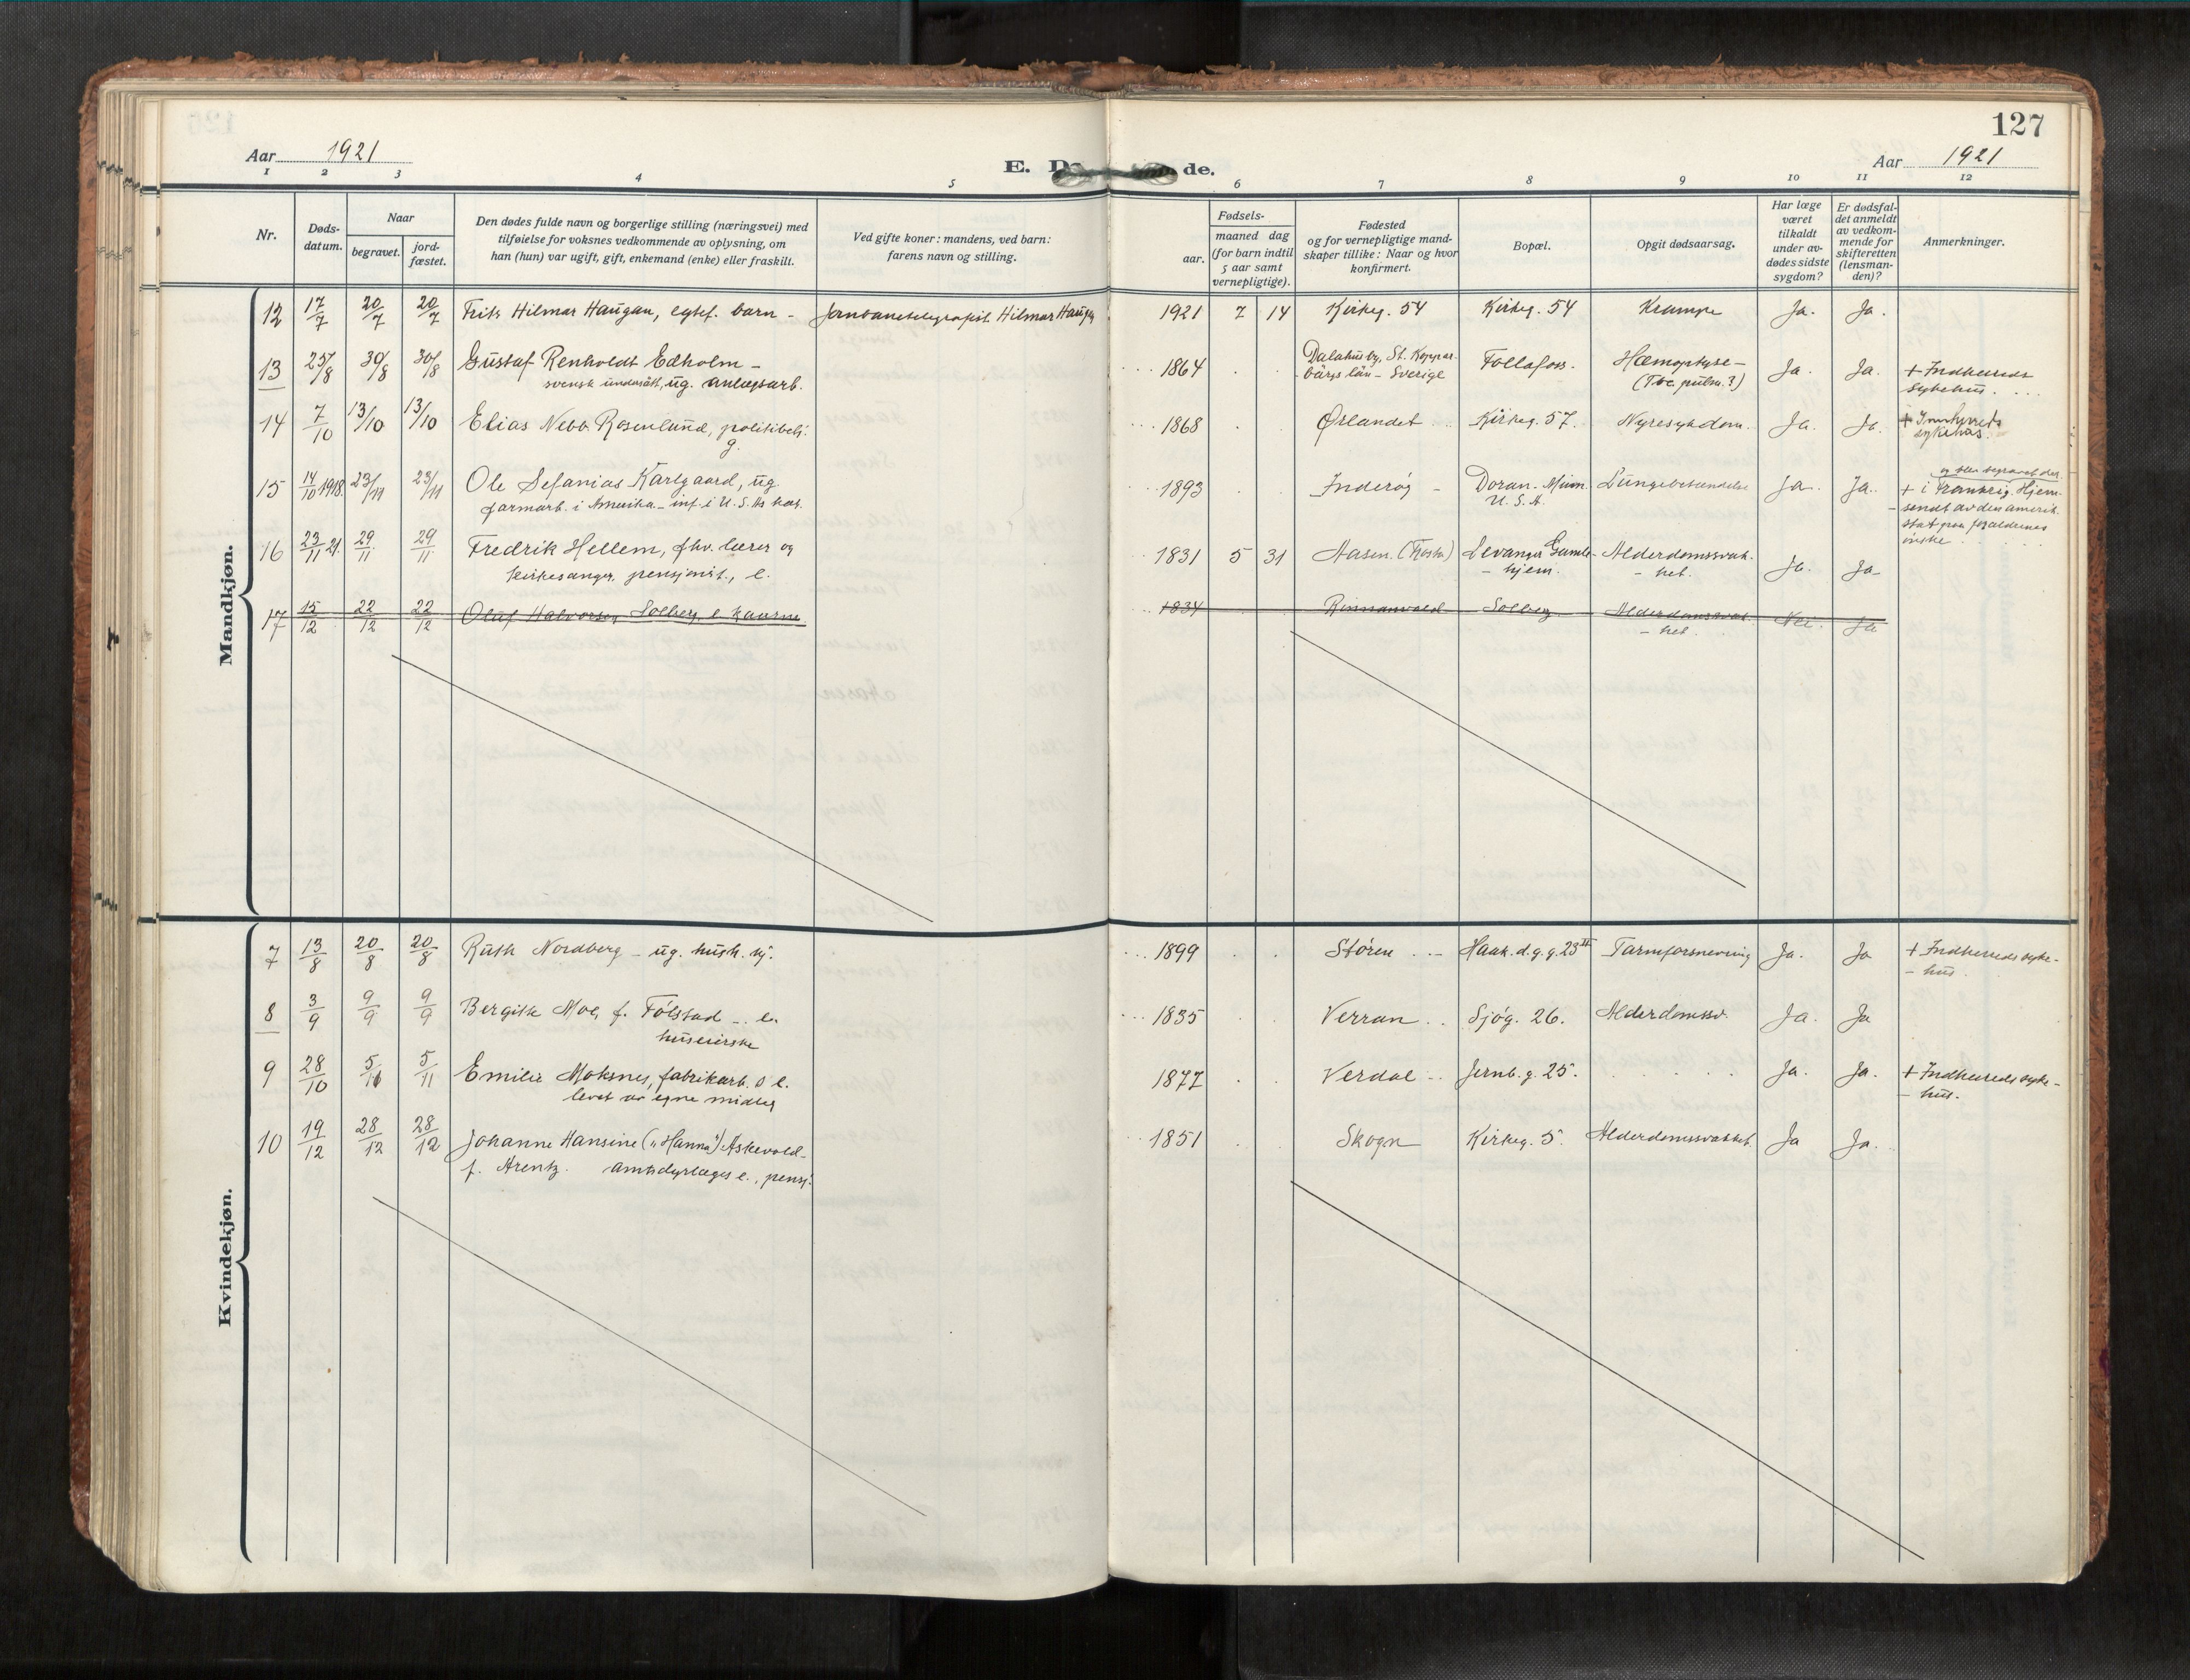 127
Aar 1921
E. D de.
Aar 1921
1 2 3 4 5 6 7 8 9 10 11 12
Nr.
Døds-
datum.
Naar
begravet.
jord-
fæstet.
Den dødes fulde navn og borgerlige stilling (næringsvei) med
tilføielse for voksnes vedkommende av oplysning, om
han (hun) var ugift, gift, enkemand (enke) eller fraskilt.
Ved gifte koner: mandens, ved barn:
farens navn og stilling.
Fødsels-
aar.
maaned dag
(for barn indtil
5 aar samt
vernepligtige).
Fødested
og for vernepligtige mand-
skaper tillike: Naar og hvor
konfirmert.
Bopæl.
Opgit dødsaarsag.
Har læge
været
tilkaldt
under av-
dødes sidste
sygdom?
Er dødsfal-
det anmeldt
av vedkom-
mende for
skifteretten
(lensman-
den)?
Anmerkninger.
Mandkjøn.
12 17/7 20/7 20/7 Frits Hilmar Haugan, egtef. barn - Jernbanetelegrafist Hilmar Haugan 1921 7 14 Kirkeg. 54 Kirkeg. 54 Krampe Ja. Ja.
13 25/8 30/8 30/8 Gustaf Renholdt Edholm - 1864 Dalahusby, St. Koppar- Follafoss. Hæmoptyse - Ja. Ja. + Indherreds
svensk undersått, ug. anlægsarb. bärgs län - Sverige (Tbc. pulm.?) sykehus.
14 7/10 13/10 13/10 Elias Nebb Rosenlund, politibetj. 1868 Ørlandet Kirkeg. 57. Nyresykdom. Ja. Ja. + Innherreds
g. sykehus.
og blev begravet der.
15 14/10 1918. 23/11 23/11 Ole Sefanias Karlgaard, ug. 1893 Inderøy - Doran - Minn. Lungebetændelse Ja. Ja. + i Frankrig. Hjem-
farmarb. i Amerika - inf. i U. S. As hær. U. S. A. sendt av den amerik.
stat paa forældrenes
ønske
16 23/11 21. 29/11 29/11 Fredrik Hellem, fhv. lærer og 1831 5 31 Aasen. Levanger Gamle- Alderdomssvak- Ja. Ja
kirkesanger, pensjonist., e. - hjem. - het.
17 15/12 22/12 22/12 Oluf Halvorsen Solberg e. kaarm. 1834 Rinnanvold Solberg Alderdomssvak- Nei. Ja
- het.
Kvindekjøn.
7 13/8 20/8 20/8 Ruth Nordberg - ug. hush. bj. 1899 Støren Haak. d. g. g. 23 II Tarmforsnevring Ja. Ja + Indherreds syke-
- hus.
8 3/9 9/9 9/9 Bergitte Moe, f. Følstad - e. 1835 Verran Sjøg. 26. Alderdomssv. Ja. Ja
huseierske
9 28/10 5/11 5/11 Emilie Moksnes, fabrikarb. s e. 1877 Verdal Jernb. g. 25. Ja. Ja. + Indherreds syke-
levet av egne midler - hus.
10 19/12 28/12 28/12 Johanne Hansine ("Hanna") Askevold- 1851 Skogn Kirkeg. 5. Alderdomssvakhet. Ja Ja.
f. Arentz. amtsdyrlæges e., pensj.